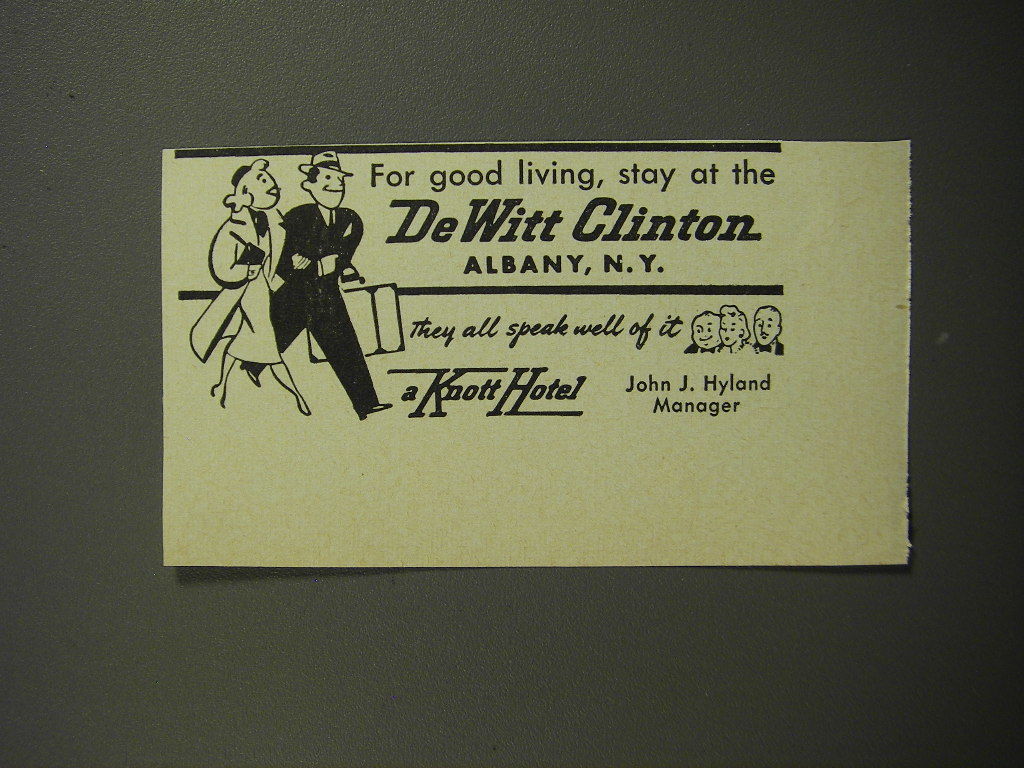 For good living, stay at the
DeWitt Clinton
ALBANY, N.Y.
They all speak well of it
a Knott Hotel
John J. Hyland
Manager